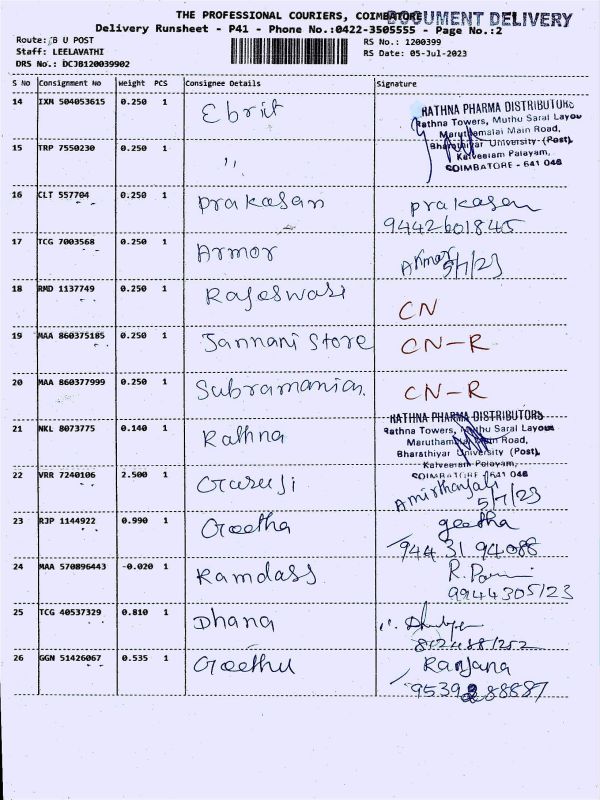 THE PROFESSIONAL COURIERS, COIMBATORE
DOCUMENT DELIVERY
Delivery Runsheet - P41 - Phone No.:0422-3505555 - Page No.:2
Route: B U POST
RS No.: 1200399
Staff: LEELAVATHI
RS Date: 05-Jul-2023
DRS No.: DCJB120039902
S No Consignment No Weight PCS Consignee Details Signature
14 IXM 504053615 0.250 1 Ebrit
RATHNA PHARMA DISTRIBUTORS
Rathna Towers, Muthu Saral Layou
Maruthamalai Main Road,
Bharathiyar University (Post),
Kalveeram Palayam,
COIMBATORE - 641 046
15 TRP 7550230 0.250 1 ,,
16 CLT 557704 0.250 1 Prakasan prakasan
9442601845
17 TCG 7003568 0.250 1 Armor Armor
5/7/23
18 RMD 1137749 0.250 1 Rajeswari CN
19 MAA 860375185 0.250 1 Jannani Store CN-R
20 MAA 860377999 0.250 1 Subramanian CN-R
21 NKL 8073775 0.140 1 Rathna
RATHNA PHARMA DISTRIBUTORS
Rathna Towers, Muthu Saral Layou
Maruthamalai Main Road,
Bharathiyar University (Post),
Kalveeram Palayam,
COIMBATORE - 641 046
22 VRR 7240106 2.500 1 Guruji Amirthanjali
5/7/23
23 RJP 1144922 0.990 1 Geetha geetha
944 31 94088
24 MAA 570896443 -0.020 1 Ramdass
9944305123
25 TCG 40537329 0.810 1 Dhana
26 GGN 51426067 0.535 1 Geethu Ranjana